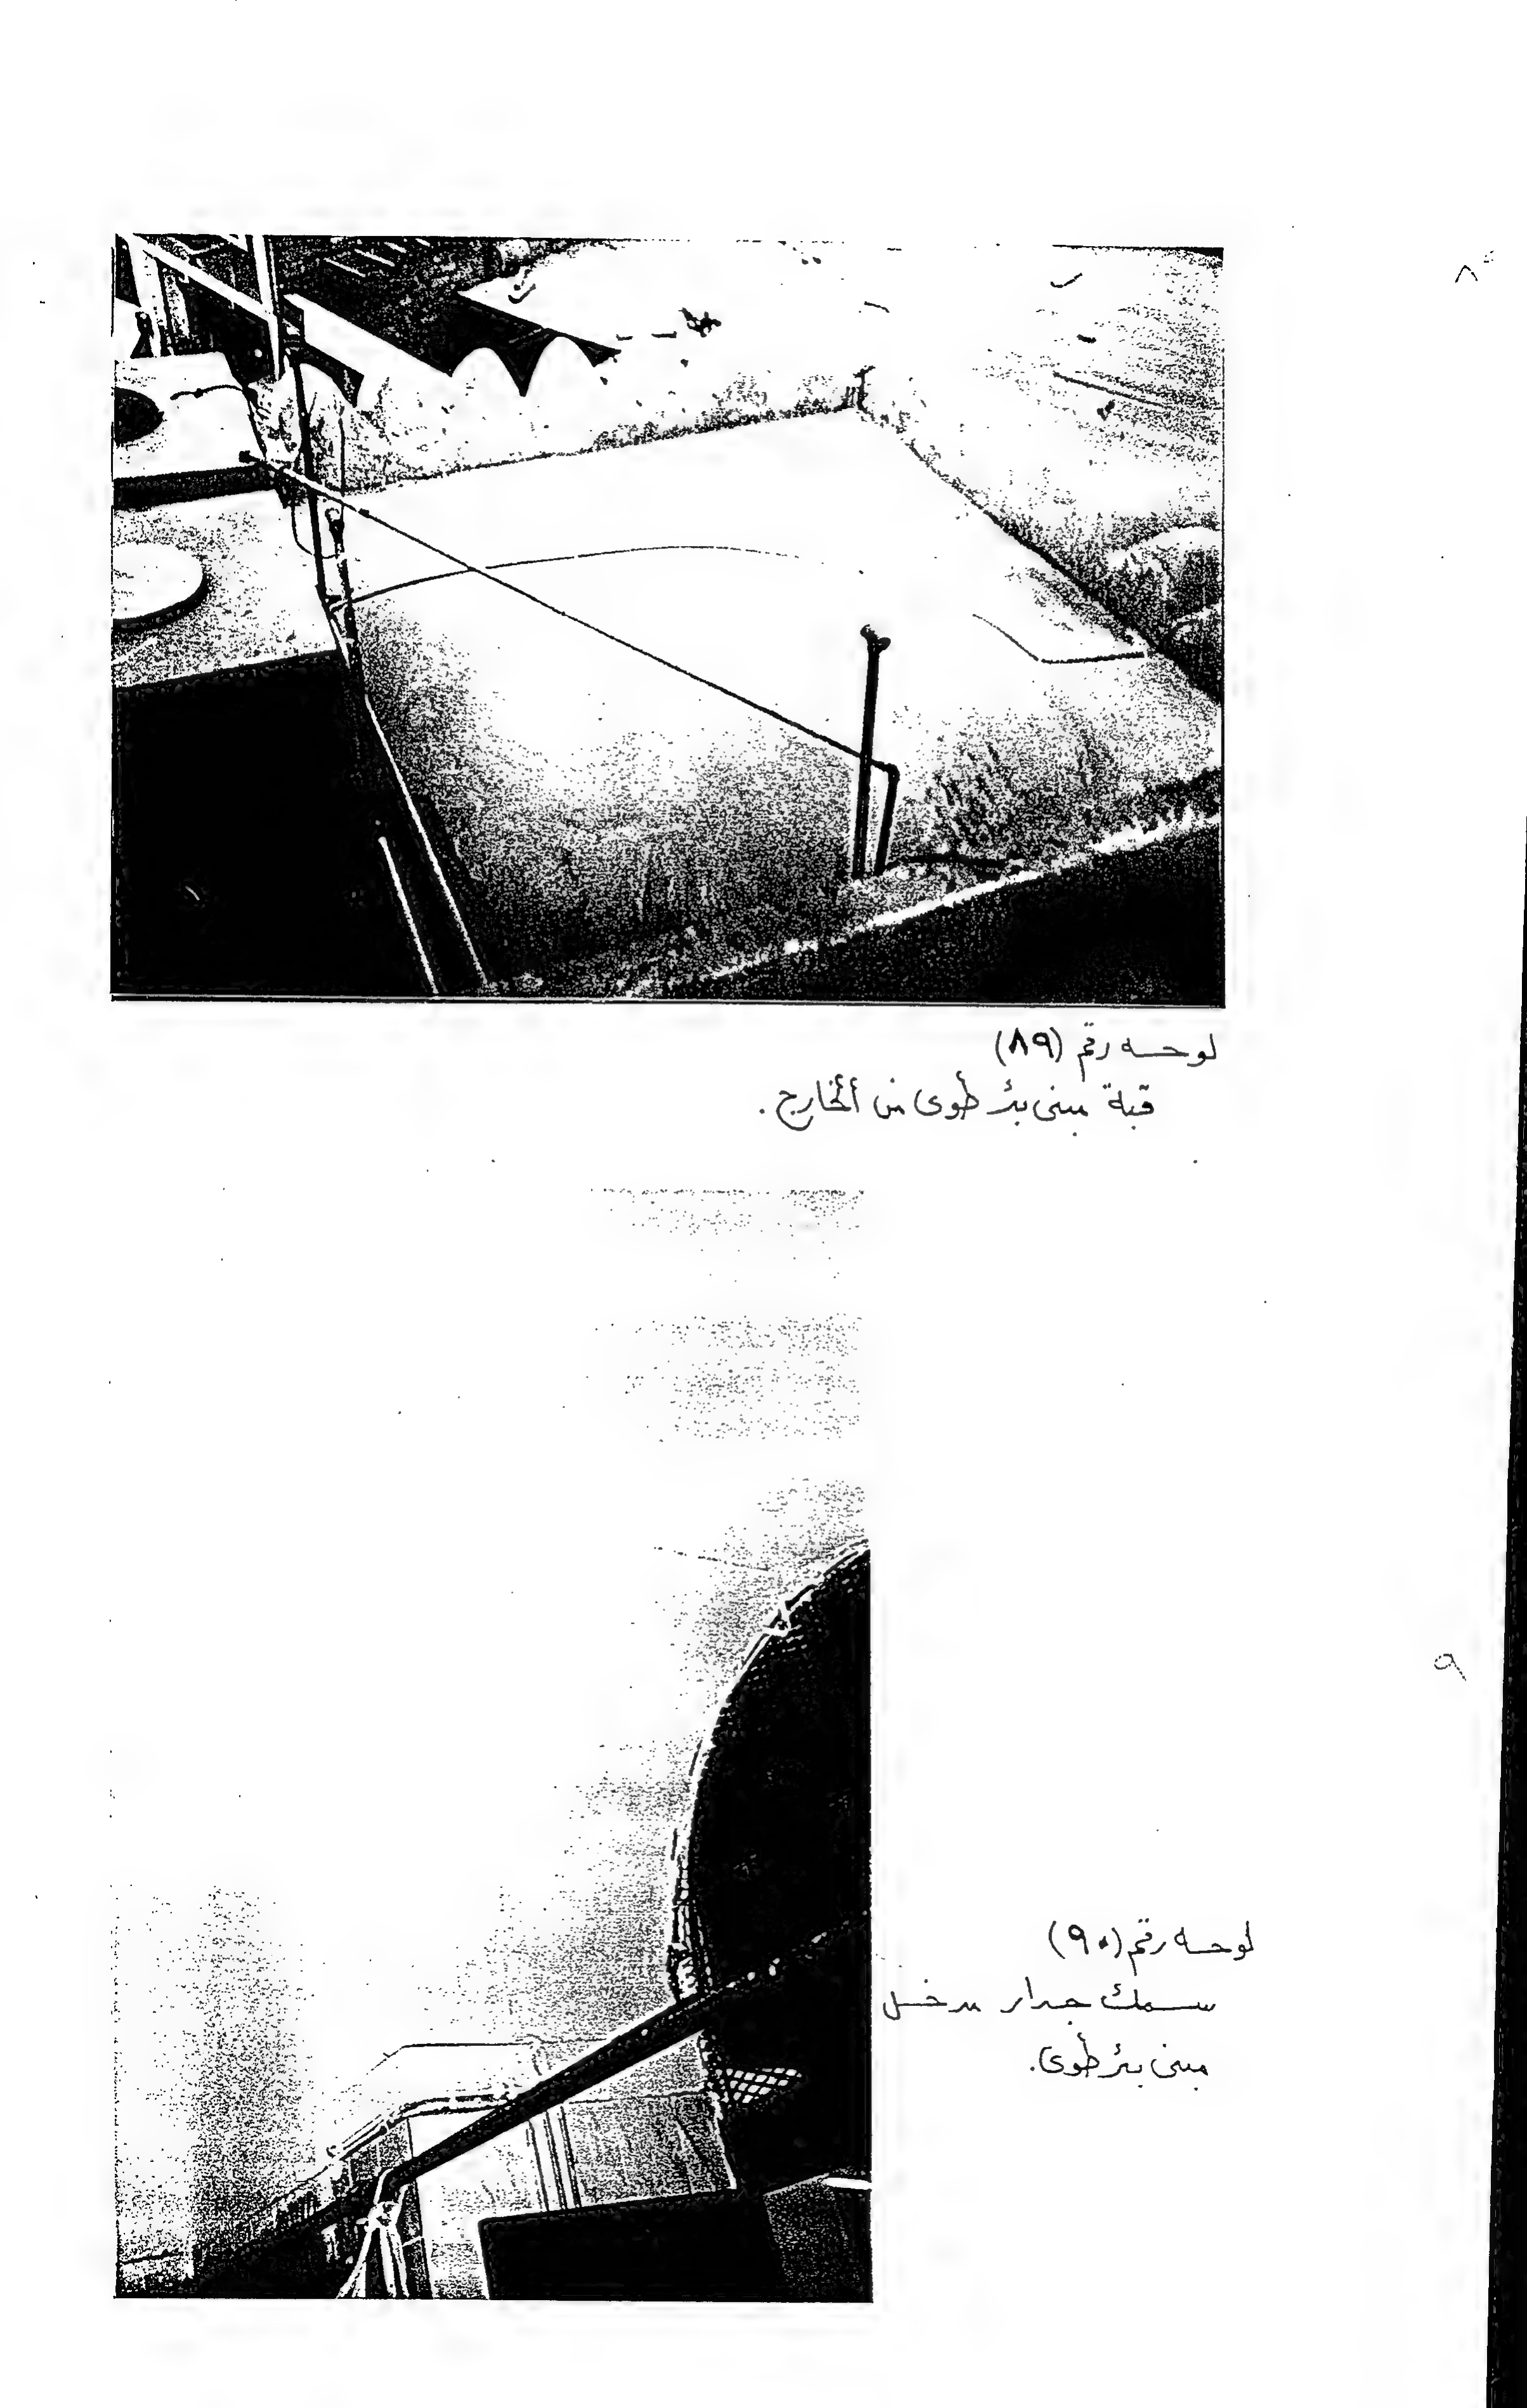 لوحه رقم (٨٩)
قبة مبنى بئر طوى من الخارج.
لوحه رقم (٩٠)
سمك جدار مدخل
مبنى بئر طوى.